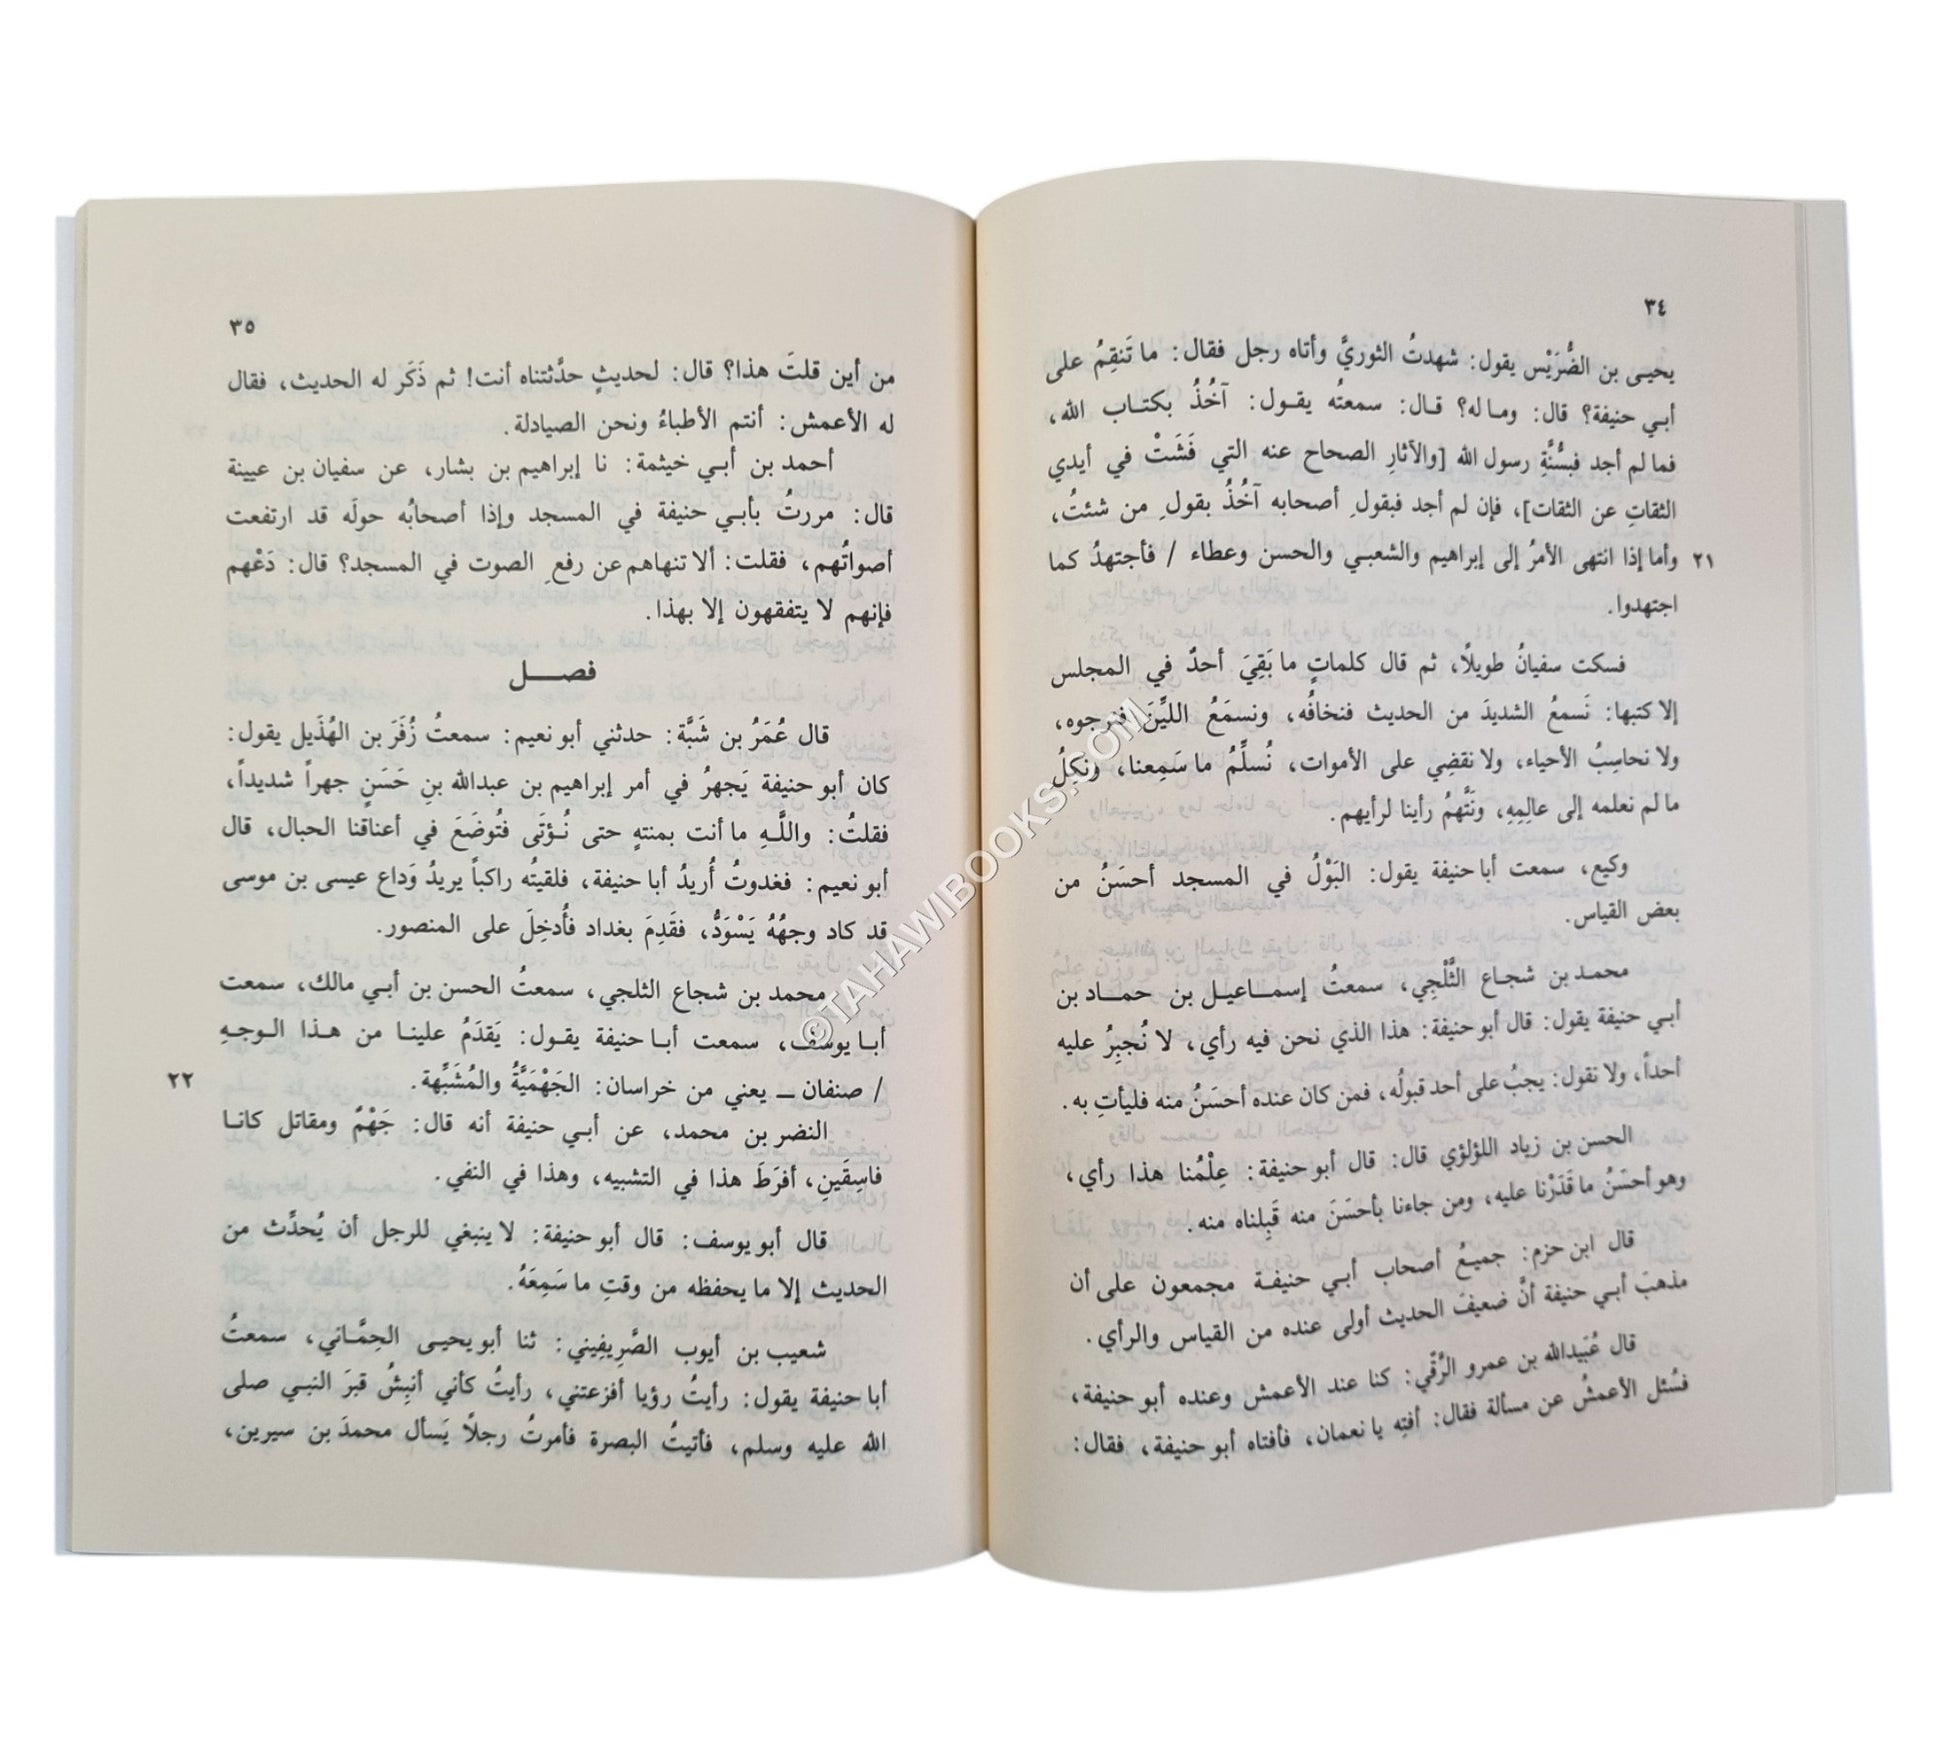 ٣٤
يحيـى بن الضُّرَيْس يقول: شهدتُ الثوريَّ وأتاه رجل فقال: ما تَنقِمُ على
أبـي حنيفة؟ قال: وما له؟ قـال: سمعتُه يقـول: آخُذُ بكتـاب الله،
فما لم أجد فبسُنَّةِ رسول الله [والآثارِ الصحاح عنه التي فَشَتْ في أيدي
الثقاتِ عن الثقات]، فإن لم أجد فبقولِ أصحابه آخُذُ بقولِ من شئتُ،
٢١ وأما إذا انتهى الأمرُ إلى إبراهيم والشعبـي والحسن وعطاء / فأجتهدُ كما
اجتهدوا.
فسكت سفيانُ طويلًا، ثم قال كلماتٍ ما بَقِيَ أحدٌ في المجلس
إلا كتبها: نَسمعُ الشديدَ من الحديث فنخافُه، ونسمَعُ الليِّنَ فنرجوه،
ولا نحاسِبُ الأحياء، ولا نقضِي على الأموات، نُسلِّمُ ما سَمِعنا، ونَكِلُ
ما لم نعلمه إلى عالِمِهِ، ونَتَّهمُ رأينا لرأيهم.
وكيع، سمعت أبا حنيفة يقول: البَوْلُ في المسجد أحسَنُ من
بعض القياس.
محمـد بن شجاع الثَّلْجِي، سمعتُ إسمـاعيـل بن حمـاد بن
أبـي حنيفة يقول: قال أبو حنيفة: هذا الذي نحن فيه رأي، لا نُجبِرُ عليه
أحداً، ولا نقول: يجبُ على أحد قبولُه، فمن كان عنده أحسَنُ منه فليأتِ به.
الحسن بن زياد اللؤلؤي قال: قال أبو حنيفة: عِلْمُنا هذا رأي،
وهو أحسَنُ ما قَدَرْنا عليه، ومن جاءنا بأحسَنَ منه قَبِلناه منه.
قال ابن حزم: جميـعُ أصحاب أبـي حنيفـة مجمعون على أن
مذهبَ أبـي حنيفة أنَّ ضعيفَ الحديث أولى عنده من القياس والرأي.
قال عُبَيدالله بن عمرو الرَّقّي: كنا عند الأعمش وعنده أبو حنيفة،
فسُئل الأعمشُ عن مسألة فقال: أفتِه يا نعمان، فأفتاه أبو حنيفة، فقال:
٣٥
من أين قلتَ هذا؟ قال: لحديثٍ حدَّثتناه أنت! ثم ذَكَر له الحديث، فقال
له الأعمش: أنتم الأطباءُ ونحن الصيادلة.
أحمد بن أبـي خيثمة: نا إبراهيم بن بشار، عن سفيان بن عيينة
قال: مررتُ بأبـي حنيفة في المسجد وإذا أصحابُه حولَه قد ارتفعت
أصواتُهم، فقلت: ألا تنهاهم عن رفعِ الصوت في المسجد؟ قال: دَعْهم
فإنهم لا يتفقهون إلا بهذا.
فصــل
قال عُمَرُ بن شَبَّة: حدثني أبو نعيم: سمعتُ زُفَرَ بن الهُذَيل يقول:
كان أبو حنيفة يَجهرُ في أمر إبراهيم بن عبدالله بنِ حَسَنٍ جهراً شديداً،
فقلتُ: واللَّـهِ ما أنت بمنتهٍ حتى نُـؤتَى فتُوضَعَ في أعناقنا الحبال، قال
أبو نعيم: فغدوتُ أُريدُ أبا حنيفة، فلقيتُه راكباً يريدُ وَداع عيسى بن موسى
قد كاد وجهُهُ يَسْوَدُّ، فقَدِمَ بغداد فأُدخِلَ على المنصور.
محمد بن شجاع الثلجي، سمعتُ الحسن بن أبـي مالك، سمعت
أبـا يوسف، سمعت أبـا حنيفة يقـول: يَقدَمُ علينـا من هـذا الـوجـهِ
٢٢ / صنفان ــ يعني من خراسان: الجَهْمِيَّةُ والمُشَبِّهة.
النضر بن محمد، عن أبـي حنيفة أنه قال: جَهْمٌ ومقاتل كانـا
فاسِقَينِ، أفرَطَ هذا في التشبيه، وهذا في النفي.
قال أبو يوسف: قال أبو حنيفة: لا ينبغي للرجل أن يُحدِّث من
الحديث إلا ما يحفظه من وقتِ ما سَمِعَهُ.
شعيب بن أيوب الصَّرِيفِيني: ثنا أبو يحيـى الحِمَّـاني، سمعتُ
أبا حنيفة يقول: رأيتُ رؤيا أفزعتني، رأيتُ كأني أنبِشُ قبرَ النبـي صلى
الله عليه وسلم، فأتيتُ البصرة فأمرتُ رجلًا يَسأل محمدَ بن سيرين،
©TAHAWIBOOKS.COM